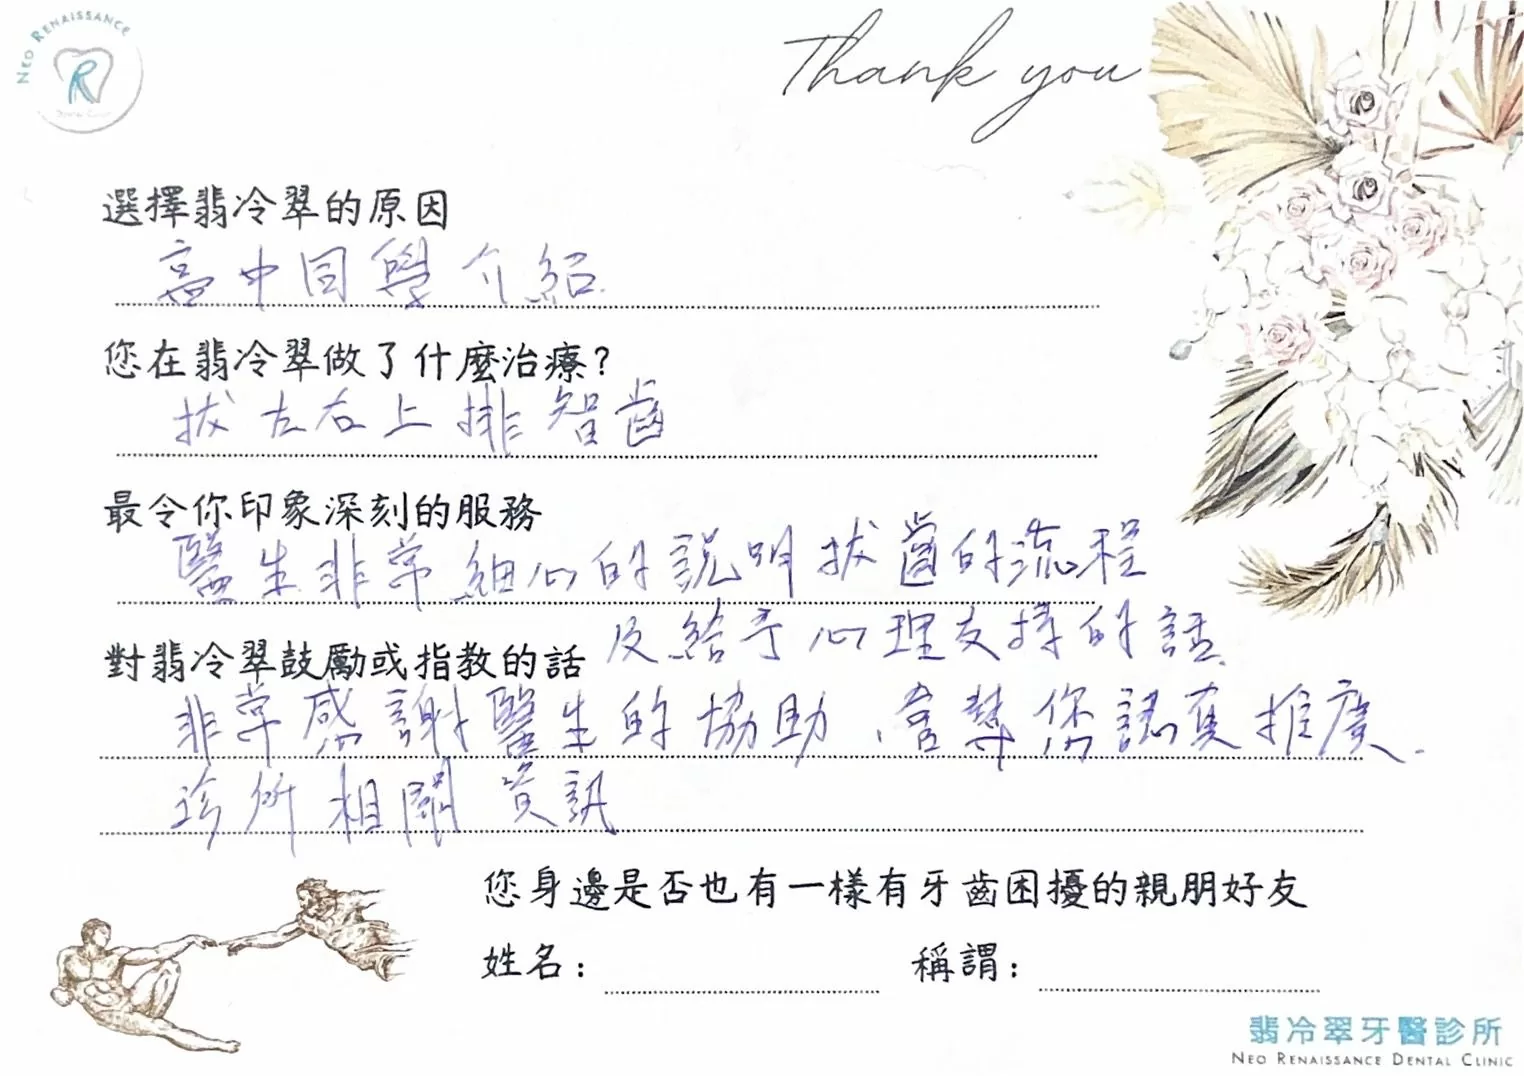 NEO RENAISSANCE
R
Dental Clinic
Thank you
選擇翡冷翠的原因
高中同學介紹.
您在翡冷翠做了什麼治療？
拔左右上排智齒
最令你印象深刻的服務
醫生非常細心的說明拔齒的流程
及給予心理支持的話.
對翡冷翠鼓勵或指教的話
非常感謝醫生的協助、會幫您認真推廣.
診所相關資訊
您身邊是否也有一樣有牙齒困擾的親朋好友
姓名： 稱謂：
翡冷翠牙醫診所
NEO RENAISSANCE DENTAL CLINIC